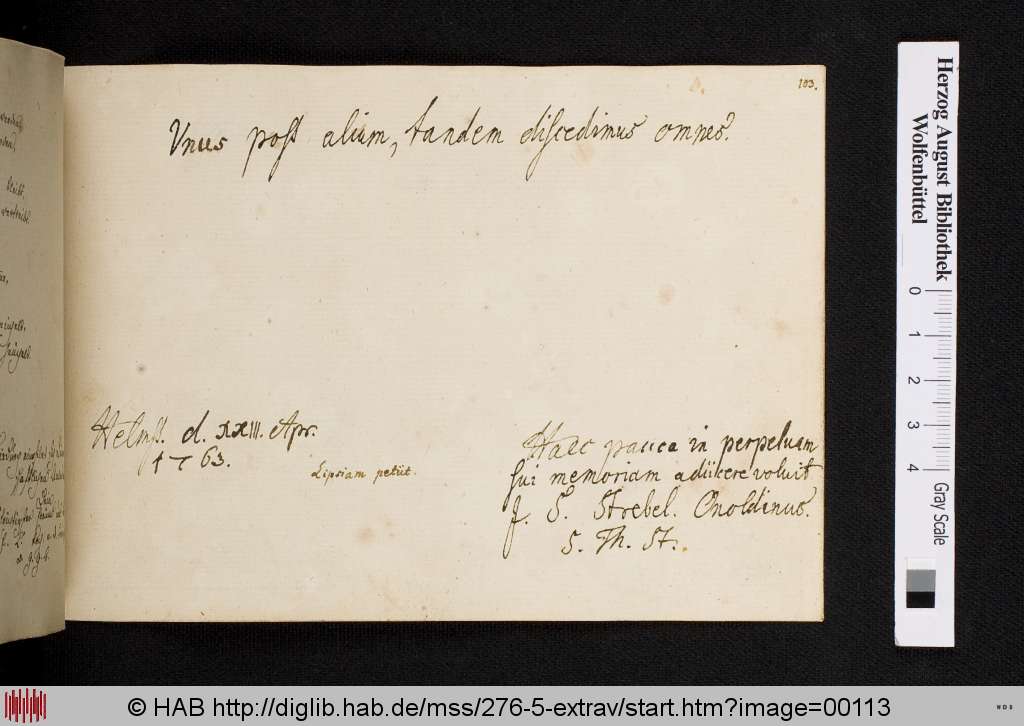 103.
Vnus post alium, tandem discedimus omnes.
Helmst. d. XXIII. Apr.
1763.
Lipsiam petiit.
Haec pauca in perpetuam
sui memoriam adiicere voluit
J. S. Strebel. Onoldinus.
S. Th. St.
Herzog August Bibliothek
Wolfenbüttel
0 1 2 3 4
Gray Scale
© HAB http://diglib.hab.de/mss/276-5-extrav/start.htm?image=00113